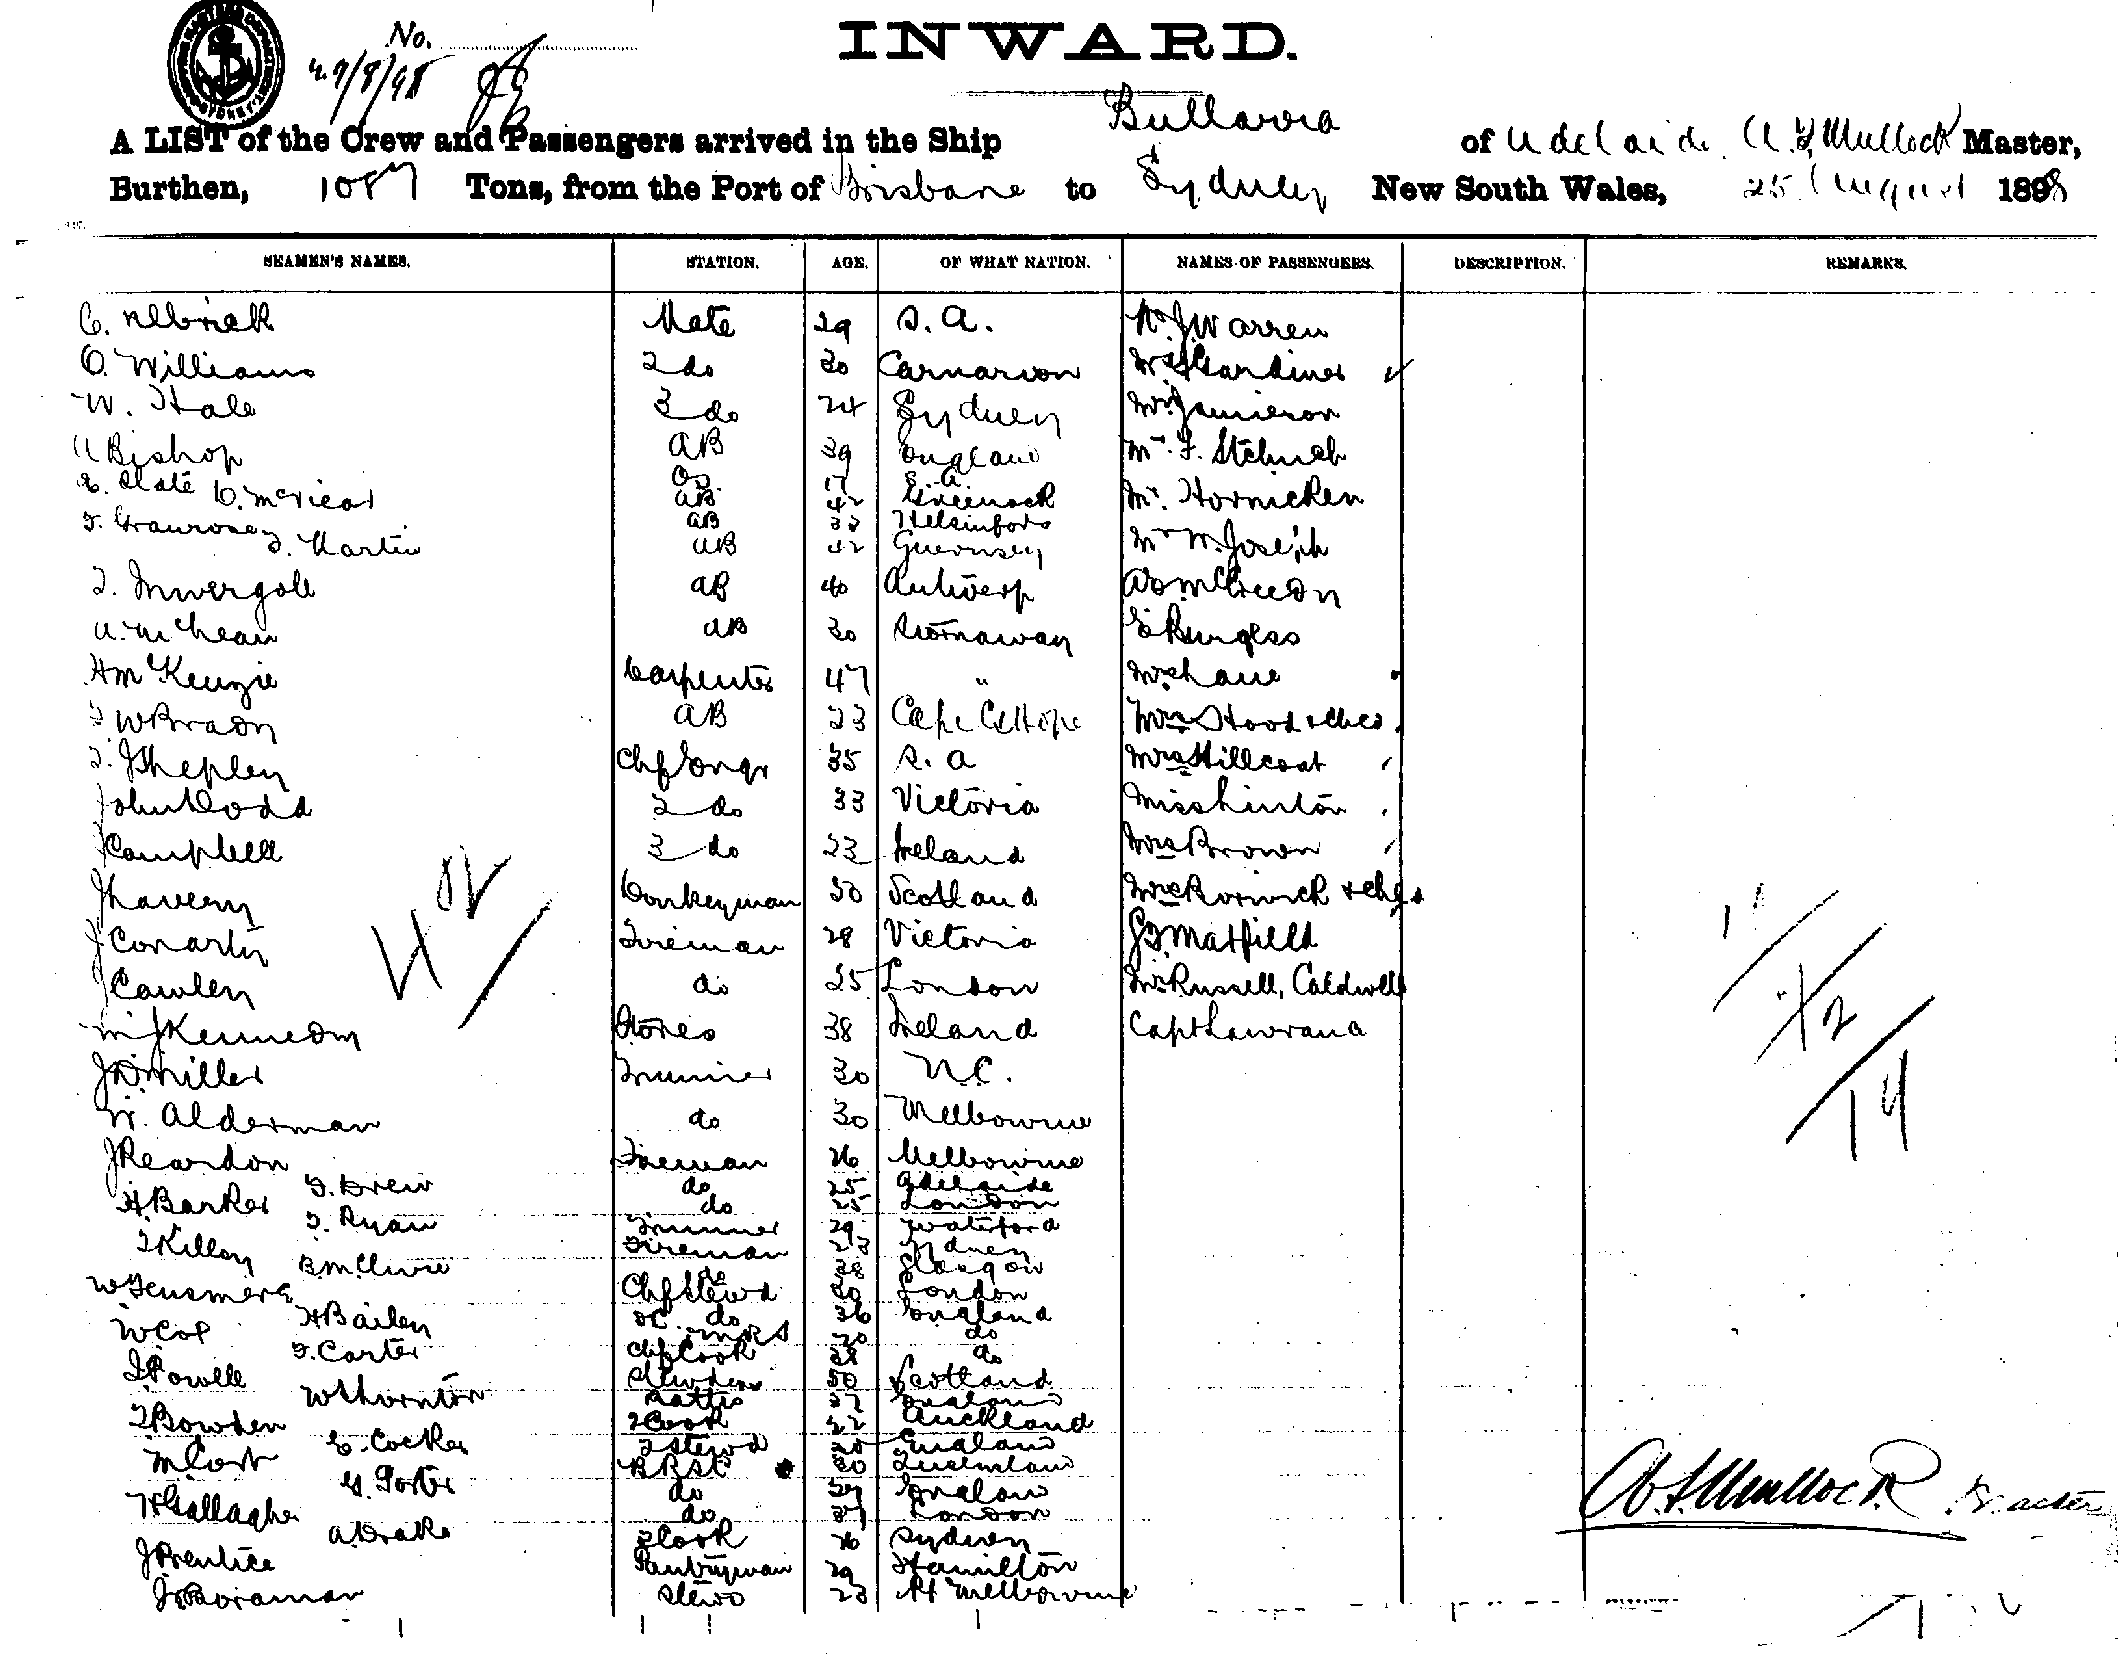 No.
27/8/98
INWARD.
A LIST of the Crew and Passengers arrived in the Ship Bullarra of Adelaide. A. F. Mullock Master,
Burthen, 1087 Tons, from the Port of Brisbane to Sydney New South Wales, 25 August 1898
SEAMEN'S NAMES. STATION. AGE. OF WHAT NATION. NAMES OF PASSENGERS. DESCRIPTION. REMARKS.
Mate 29 S. A. Warren
O. Williams 2 do 30 Carnarvon Gardiner
W. Hale 3 do 24 Sydney Mrs Jamieson
A Bishop AB 39 England Mr. F.
E. Slate OS 17 S. A.
D. McVicar AB 42 Greenock Mr. Hornicken
AB Helsinfors
Martin AB 42 Guernsey Mr W. Joseph
AB 40 Antwerp
A. McLean AB 30 Stornaway E Burgess
H McKenzie Carpenter 47 " Mrs Lane
W Brady AB 23 Cape G Hope Mrs Hood & chd
J Shepley Chf Engr 35 S. A Mrs Hillcoat
John Dodd 2 do 33 Victoria Miss Linton
J Campbell 3 do 23 Ireland Mrs Brown
J Lavery Donkeyman 50 Scotland Mrs Borwick & chd
J Conartty Fireman 28 Victoria Matfield
J Cawley do 25 London Mrs Russell, Caldwell
M J Kennedy Stores 38 Ireland Capt Lawrana
J D Miller Trimmer 30 N.C.
W. Alderman do 30 Melbourne
J Reardon Fireman 26 Melbourne
Drew do 25 Adelaide
H Barker do 25 London
Ryan Trimmer 29 Waterford
Killen Fireman Sydney
B McClure do 28 Glasgow
Chf Stewd 30 London
H Bailey 2C. do 36 England
W Cox do
Carter Chf Cook 28 do
Powell Stewdess 50 Scotland
W Thornton Pattis 27 England
Bowden 2 Cook 22 Auckland
E. Cocker 2 Stewd 20 England
M Cort BRSt 30 Queensland
G. Porter do England
H Gallagher do London
A Drake 3 Cook 26 Sydney
J Prentice Pantryman 29 Hamilton
J Boraman Stewd 23 Pt Melbourne
402
11
2
14
A. F. Mullock Master